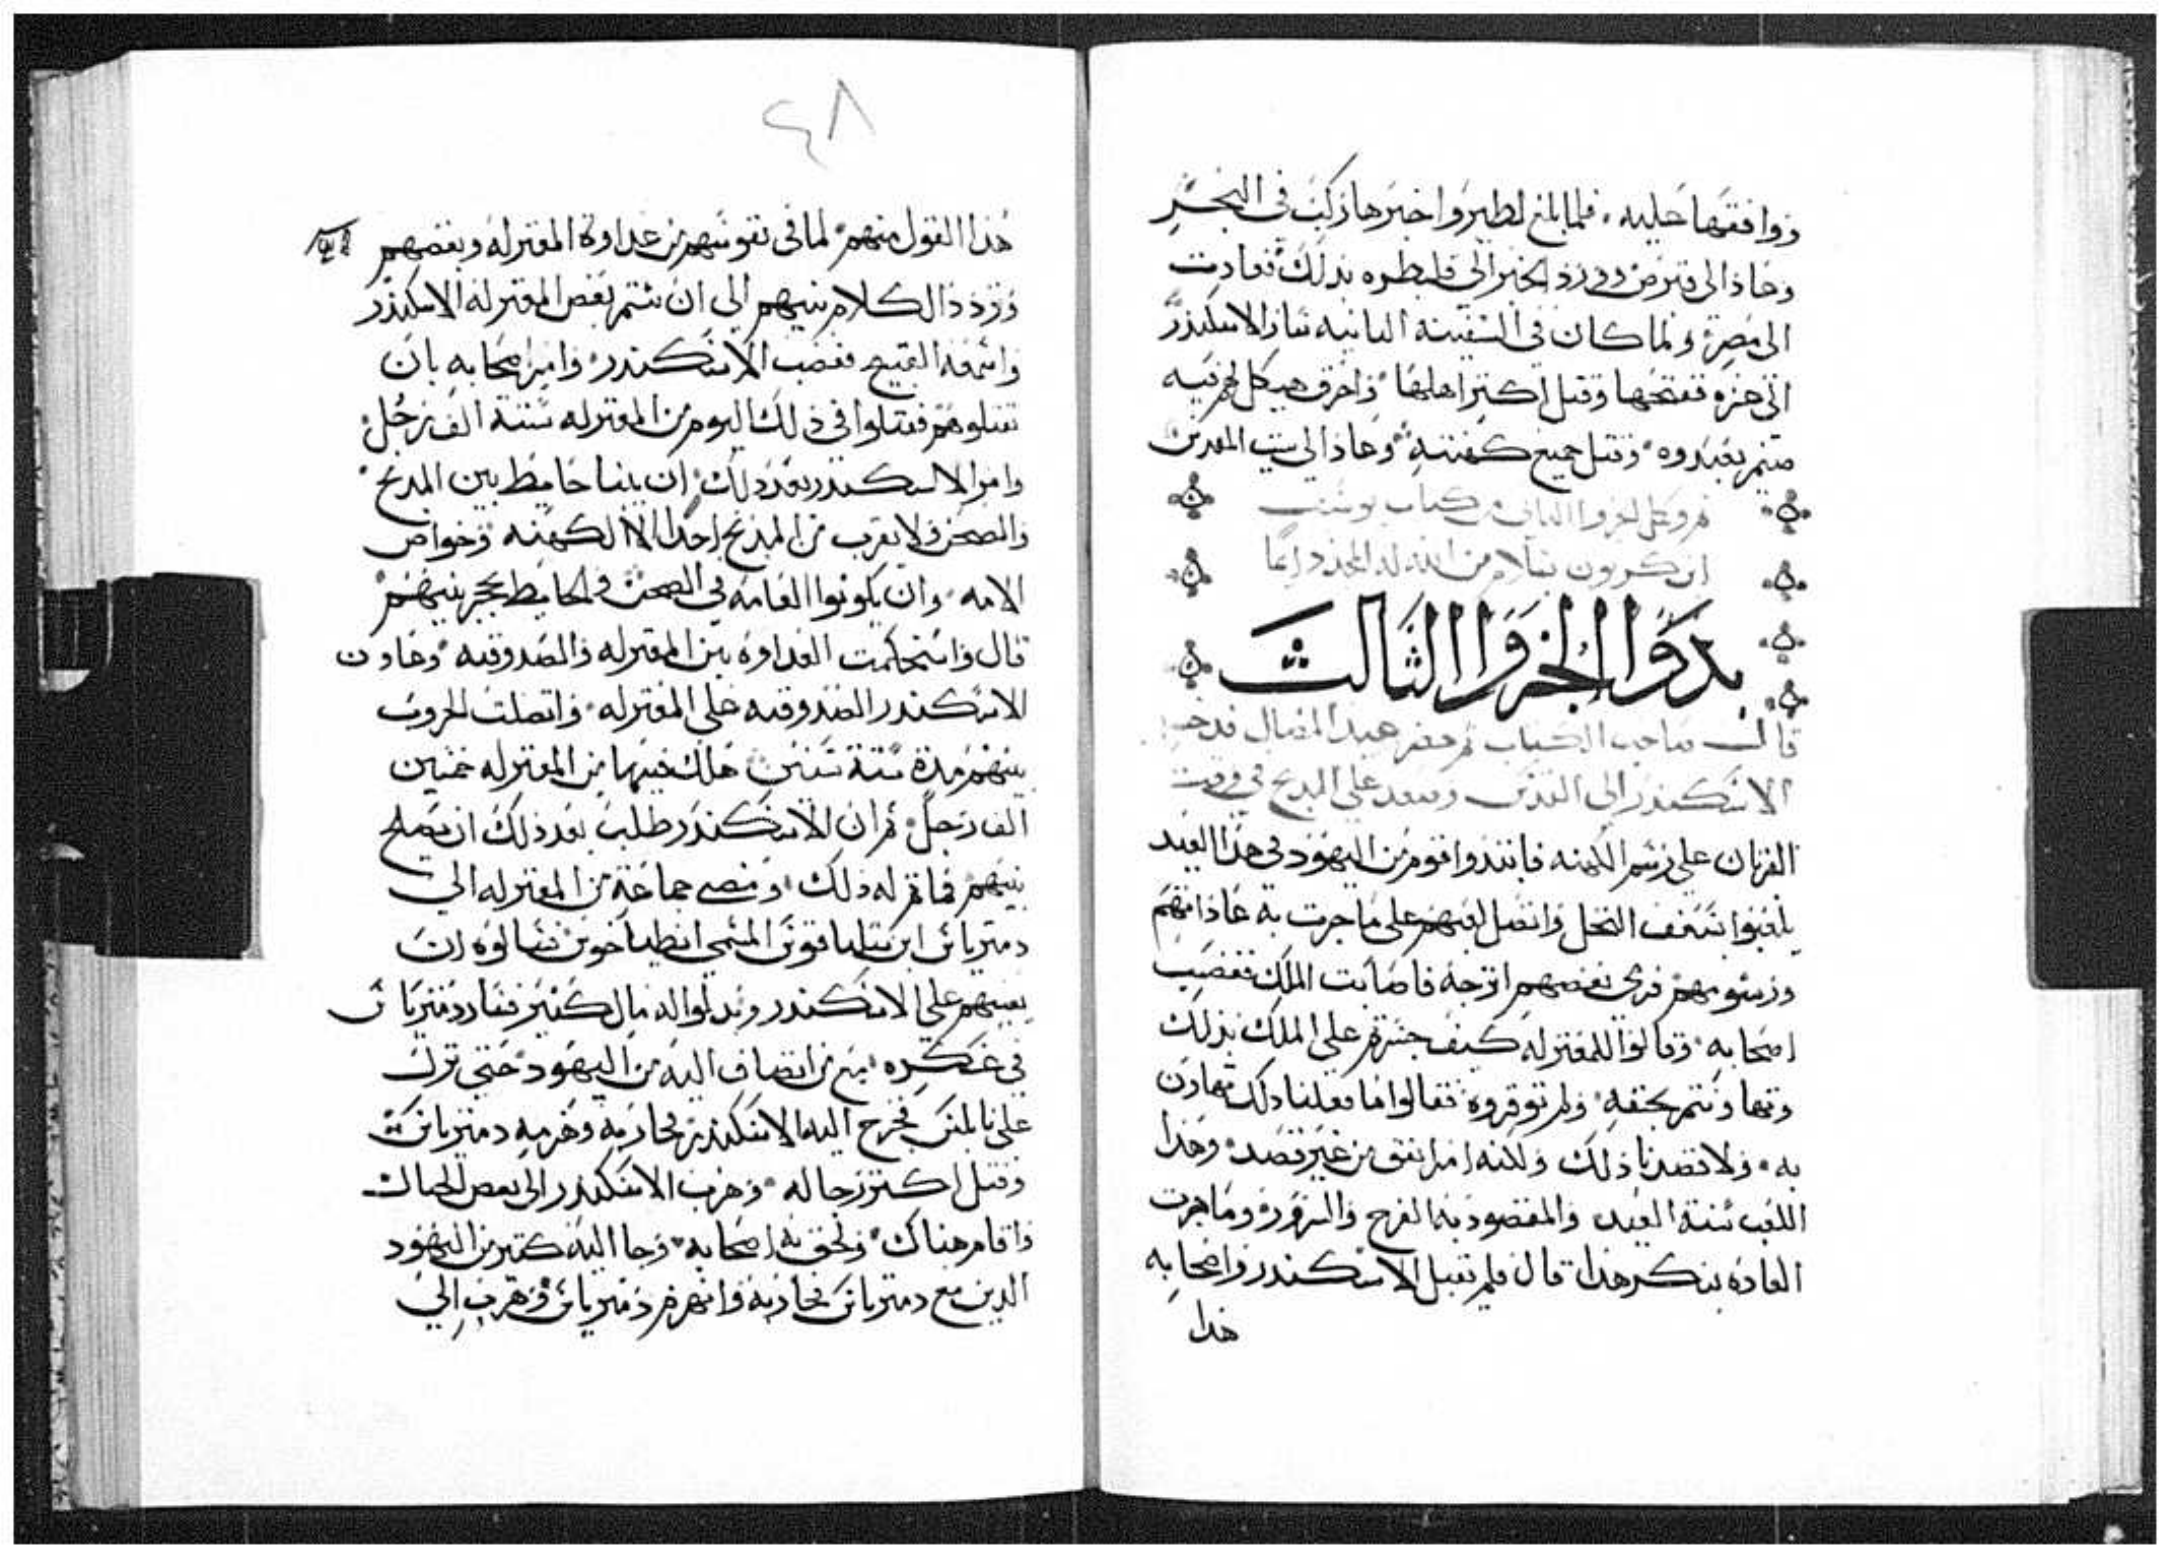 ووافقها عليه، فلما بلغ لطيروا خبرها ركب في البحر
وعاد الى قبرص وورد الخبر الى قلبطره بذلك فعادت
الى مصر، ولما كان في السنة الثانيه سار الاسكندر
الى غزه ففتحها وقتل اكثر اهلها، واحرق هيكل
صنم يعبدوه، وقتل جميع كهنته، وعاد الى بيت المقدس
الجزوا الثاني من كتاب يوسف
ابن كريون بسلام من الله له المجد دايما
بدوا الجزوا الثالث
قال صاحب الكتاب ثم حضر عيد المضال فدخل
الاسكندر الى القدس وصعد على المدبح في وقت
القربان على رسم الكهنه فابتدوا قوم من اليهود في هذا العيد
يلعبوا بسعف النخل واتصل لعبهم على ما جرت به عاداتهم
ورسومهم فرمى بعضهم اترجه فاصابت الملك فغضب
اصحابه، وقالوا للمعتزله كيف جسرتم على الملك بذلك
به، ولا قصدنا ذلك ولكنه امر اتفق من غير قصد، وهذا
اللعب سنة العيد، والمقصود به الفرح والسرور، وما جرت
العاده بنكر هذا، قال فلم تقبل الاسكندر واصحابه
هذا
٤٨
هذا القول منهم، لما في نفوسهم من عداوة المعتزله وبغضهم
وتردد الكلام بينهم الى ان شتم بعض المعتزله الاسكندر
واسمعه القبيح فغضب الاسكندر، وامر اصحابه بان
تقتلوهم فقتلوا في ذلك اليوم من المعتزله ستة الف رجل،
وامر الاسكندر بعد ذلك، ان يبنا حايط بين المدبح،
والصحن ولا يقرب من المدبح احدا الا الكهنه وخواص
الامه، وان يكونوا العامه في الصحن والحايط يحجز بينهم
قال واستحكمت العداوه بين المعتزله والصدوقيه، وعاون
الاسكندر الصدوقيه على المعتزله، واتصلت الحروب
بينهم مدة ستة سنين هلك فيها من المعتزله خمسين
الف رجل، ثم ان الاسكندر طلب بعد ذلك ان يصلح
بينهم فما تم له ذلك، ومضى جماعة من المعتزله الى
دمتريانس ابن سلياقوس المسمى انطياخوس، فسالوه ان
يعينهم على الاسكندر وبدلوا له مال كثير فسار دمتريانس
في عسكره، مع من انضاف اليه من اليهود، حتى نزل
على نابلس فخرج اليه الاسكندر بحاربه وهزمه دمتريانس
وقتل اكثر رجاله، وهرب الاسكندر الى بعض الجبال
واقام هناك، ولحق به اصحابه، وجا اليه كتير من اليهود
الدين مع دمتريانس بحاربه وانهزم دمتريانس وهرب الى